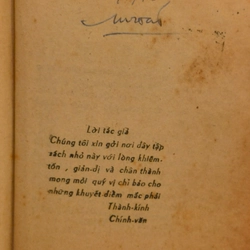 Lời tác giả
Chúng tôi xin gởi nơi đây tập
sách nhỏ này với lòng khiêm-
tốn, giản-dị và chân thành
mong mỏi quý vị chỉ bảo cho
những khuyết điểm mắc phải
Thành-kính
Chính-văn